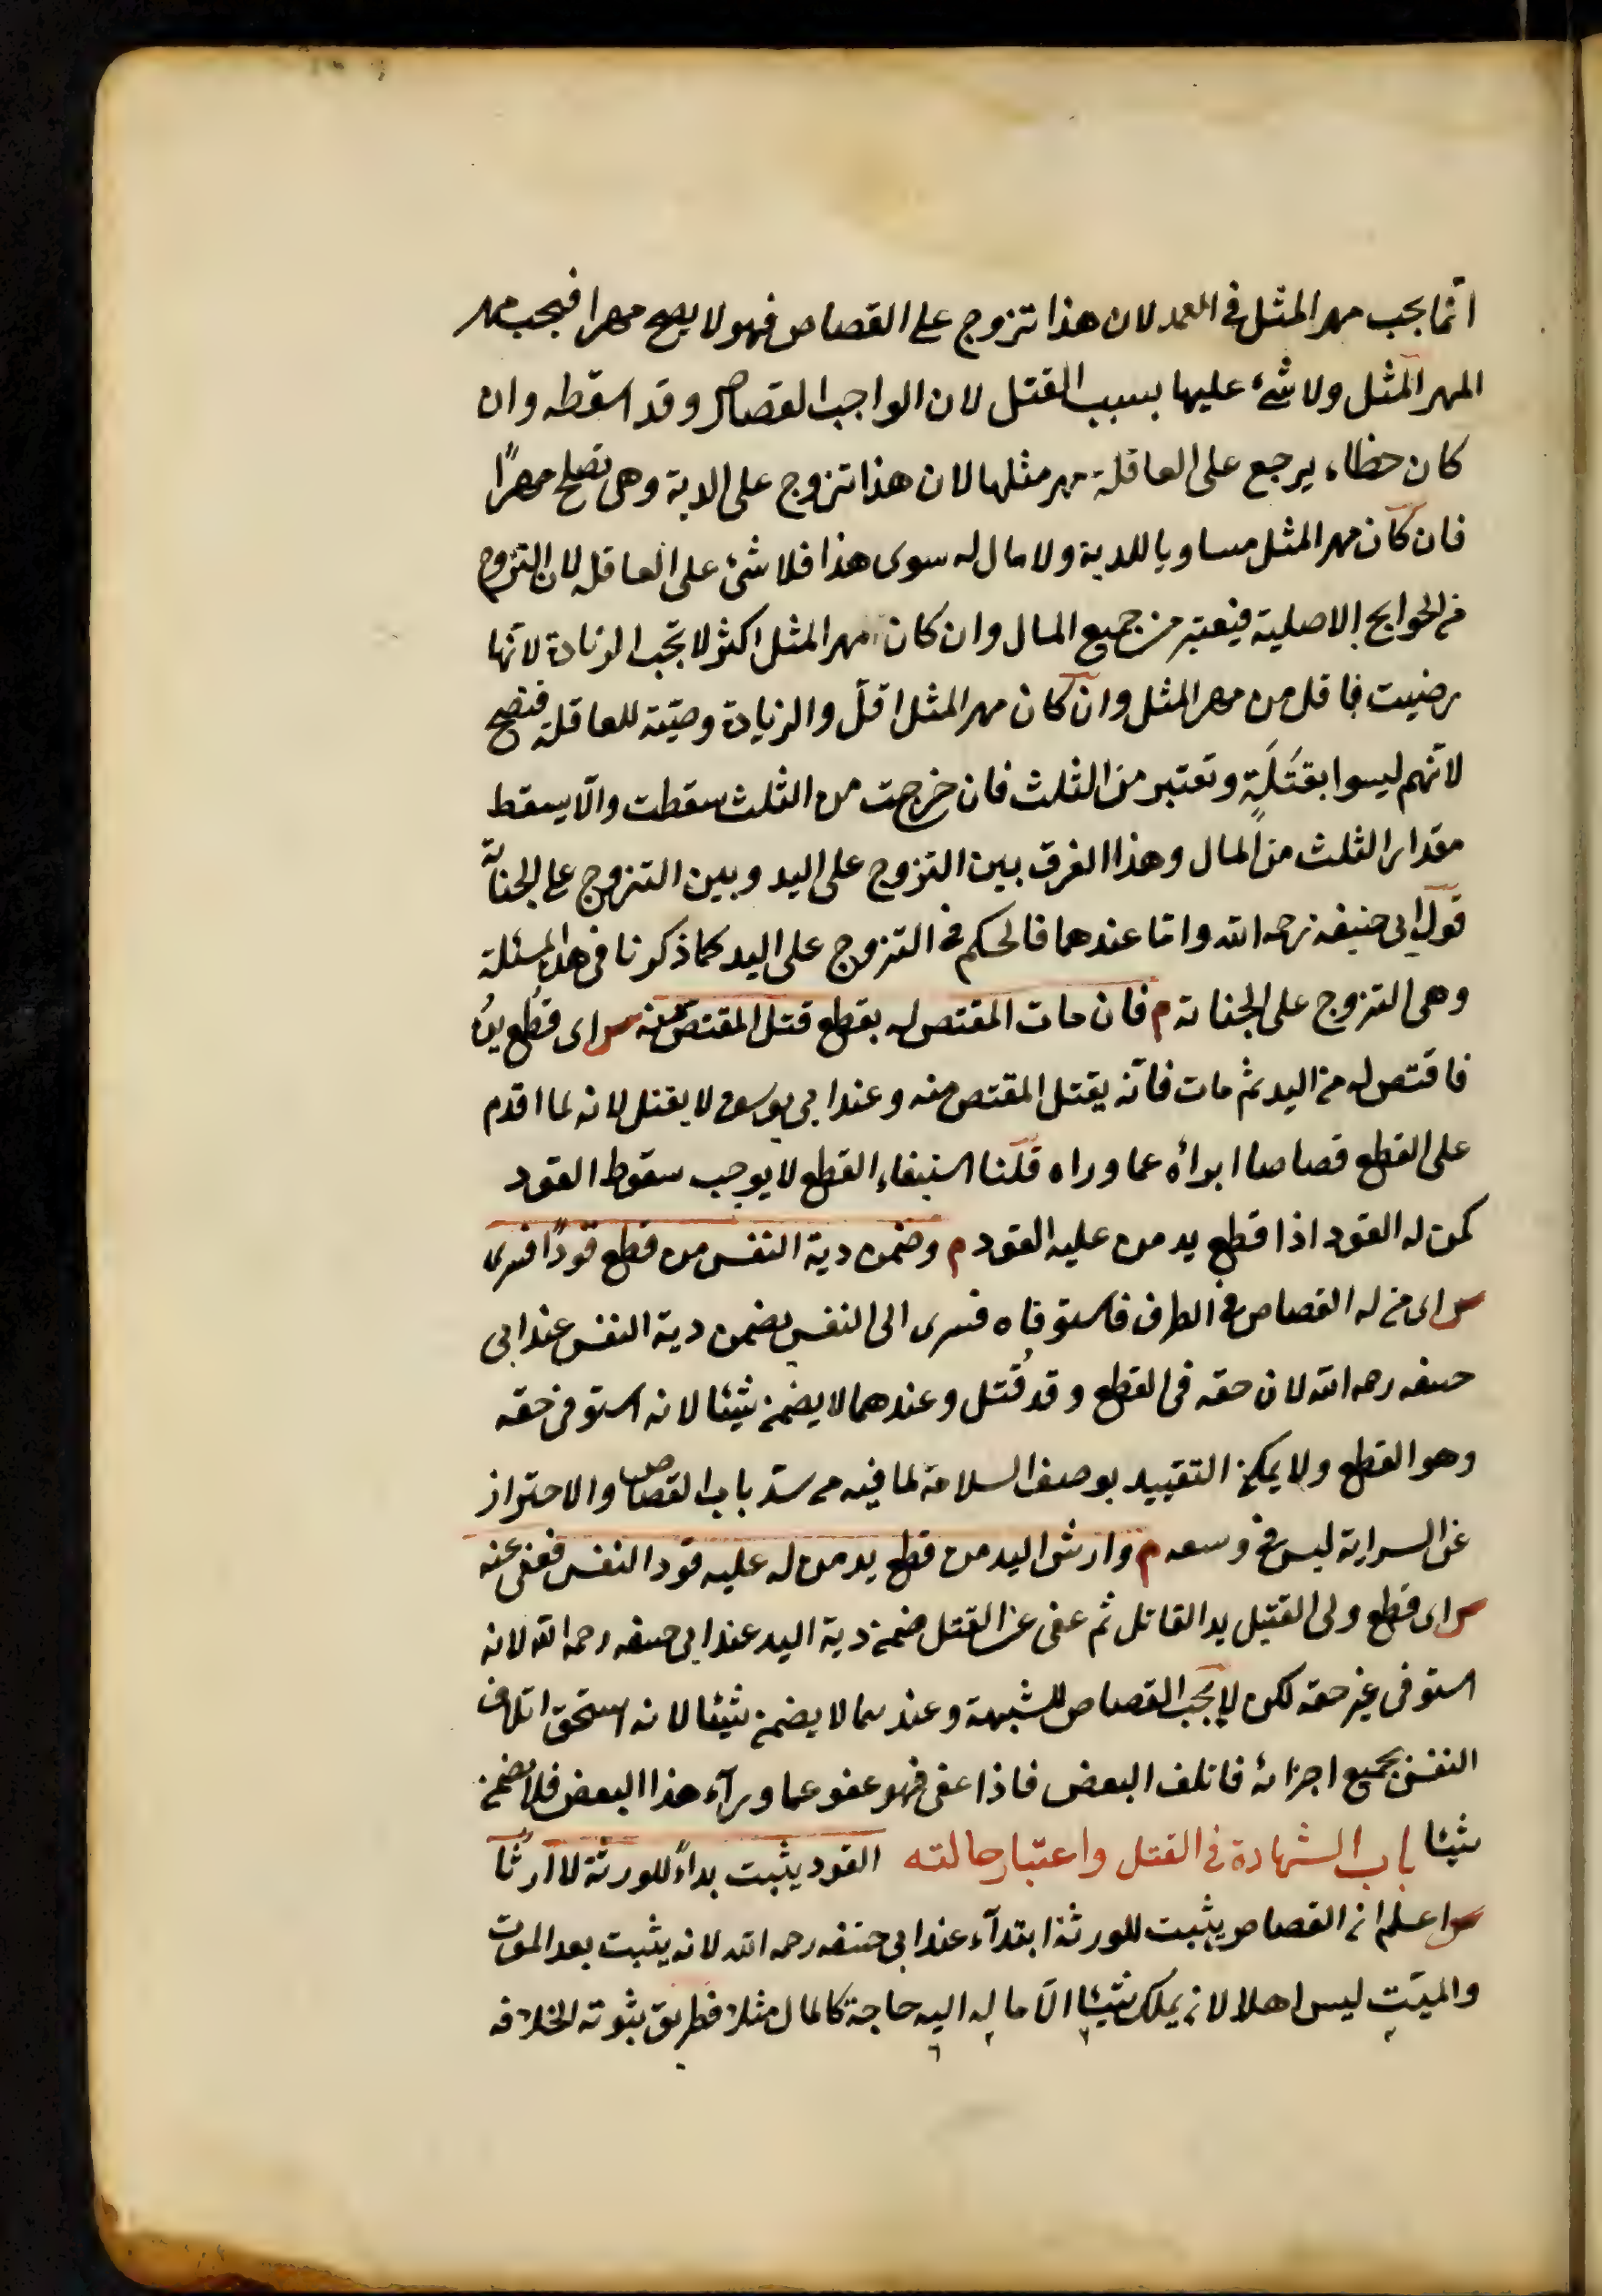 انّما يجب مهر المثل فى العمد لان هذا تزوج على القصاص فهو لا يصح مهرا فيجب مهر
المهر المثل ولا شئ عليها بسبب القتل لان الواجب القصاص وقد اسقطه وان
كان خطاء يرجع على العاقلة مهر مثلها لان هذا تزوج على الدية وهى تصلح مهرًا
فان كان مهر المثل مساويا للدية ولا مال له سوى هذا فلا شئ على العاقله لان التزوج
من الحوايج الاصلية فيعتبر من جميع المال وان كان مهر المثل اكثر لا تجب الزيادة لانّها
رضيت باقل من مهر المثل وان كان مهر المثل اقلّ والزيادة وصيّة للعاقلة فتصح
لانّهم ليسوا بقَتَلَةٍ وتعتبر من الثلث فان خرجت من الثلث سقطت والّا يسقط
مقدار الثلث من المال وهذا الفرق بين التزوج على اليد وبين التزوج على الجناية
قول ابى حنيفه رحمه الله وامّا عندهما فالحكم فى التزوج على اليد كما ذكرنا فى هذه المسئلة
وهى التزوج على الجناية م فان مات المقتص له بقطع قتل المقتص منه س اى قُطع يدُه
فاقتص له من اليد ثم مات فانّه يقتل المقتص منه وعند ابى يوسف لا يقتل لانه لما اقدم
على القطع قصاصا ابرأه عما وراه قلنا استيفاء القطع لا يوجب سقوط القود
كمن له القود اذا قطع يد من عليه القود م وضمن دية النفس من قطع قودًا فسرى
س اى من له القصاص فى الطرف فاستوفاه فسرى الى النفس يضمن دية النفس عند ابى
حنيفه رحمه الله لان حقه فى القطع وقد قُتل وعندهما لا يضمن شيئا لانه استوفى حقه
وهو القطع ولا يمكن التقييد بوصف السلامة لما فيه من سدّ باب القصاص والاحتراز
عن السراية ليس فى وسعه م وارش اليد من قطع يد من له عليه قود النفس فعفى عنه
س اى قطع ولى القتيل يد القاتل ثم عفى عن القتل ضمن دية اليد عند ابى حنيفه رحمه الله لانه
استوفى غير حقه لكن لا يجب القصاص للشبهة وعندهما لا يضمن شيئا لانه استحق اتلاف
النفس بجميع اجزائه فاتلف البعض فاذا عفى فهو عفو عما ورآء هذا البعض فلا يضمن
شيئا باب الشهادة فى القتل واعتبار حالته القود يثبت بدأً للورثة لا ارثًا
س اعلم ان القصاص يثبت للورثة ابتدآء عند ابى حنيفه رحمه الله لانه يثبت بعد الموت
والميّت ليس اهلا لان يملك شيئا الّا ما له اليه حاجة كالمال مثلا فطريق ثبوته الخلافة